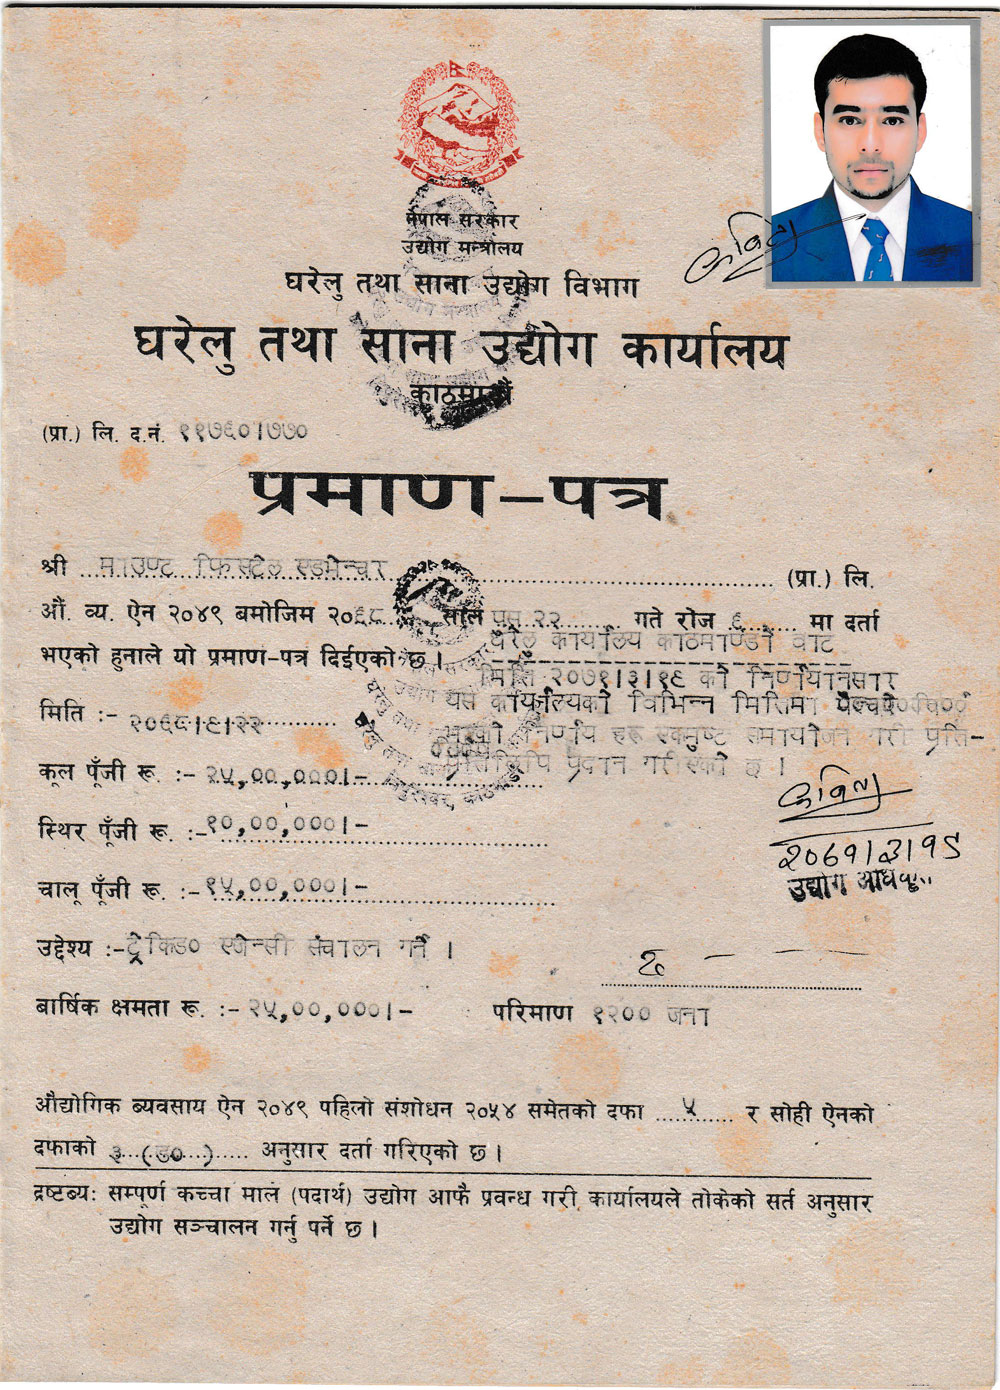 नेपाल सरकार
उद्योग मन्त्रालय
घरेलु तथा साना उद्योग विभाग
घरेलु तथा साना उद्योग कार्यालय
काठमाडौं
(प्रा.) लि. द.नं. ११७६०।७७०
प्रमाण-पत्र
श्री माउण्ट फिस्टेल एडभेन्चर (प्रा.) लि.
औं. व्य. ऐन २०४९ बमोजिम २०६८ साल पुस २२ गते रोज ६ मा दर्ता
भएको हुनाले यो प्रमाण-पत्र दिईएको छ।
घरेलु कार्यालय काठमाण्डौ वाट
मिति २०७१।३।१९ को निर्णयानुसार
यस कार्यालयको विभिन्न मितिमा
निर्णय हरु एकमुष्ट समायोजन गरी प्रति-
प्रतिलिपि प्रदान गरिएको छ।
मिति :- २०६८।९।२२
कूल पूँजी रू. :- २५,००,०००।-
स्थिर पूँजी रू. :- १०,००,०००।-
चालू पूँजी रू. :- १५,००,०००।-
२०७१।३।१९
उद्योग
उद्देश्य :- ट्रेकिङ एजेन्सी संचालन गर्ने।
बार्षिक क्षमता रू. :- २५,००,०००।- परिमाण १२०० जना
औद्योगिक ब्यवसाय ऐन २०४९ पहिलो संशोधन २०५४ समेतको दफा ५ र सोही ऐनको
दफाको ३ (ङ) अनुसार दर्ता गरिएको छ।
द्रष्टब्य: सम्पूर्ण कच्चा माल (पदार्थ) उद्योग आफै प्रवन्ध गरी कार्यालयले तोकेको सर्त अनुसार
उद्योग सञ्चालन गर्नु पर्ने छ।